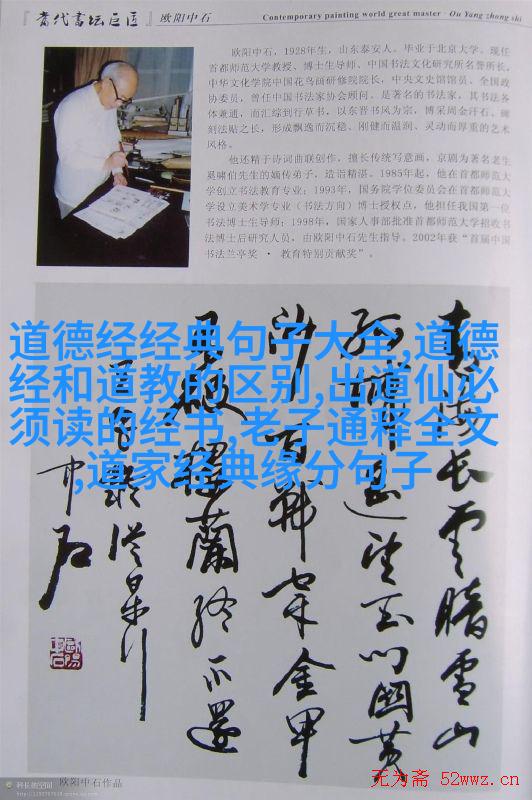 『当代书坛巨匠』 欧阳中石
Contemporary painting world great master · Ou Yang zhong shi
欧阳中石，1928年生，山东泰安人。毕业于北京大学。现任
首都师范大学教授、博士生导师、中国书法文化研究所名誉所长，
中华文化学院中国花鸟画研修院院长，中央文史馆馆员、全国政
协委员，曾任中国书法家协会顾问。是著名的书法家，其书法各
体兼通，而汇综到行草书，以东晋书风为宗，博采周金汗石、碑
刻法贴之长，形成飘逸而沉稳、刚健而温润、灵动而厚重的艺术
风格。
他还精于诗词曲联创作，擅长传统写意画，京剧为著名老生
奚啸伯先生的嫡传弟子，造诣精湛。1985年起，他在首都师范大
学创立书法教育专业；1993年，国务院学位委员会在首都师范大
学设立美术学专业（书法方向）博士授权点，他担任我国第一位
书法博士生导师；1998年，国家人事部批准首都师范大学招收书
法博士后研究人员，由欧阳中石先生指导。2002年获“首届中国
书法兰亭奖 · 教育特别贡献奖”。
道德经经典句子大全,道德
经和道教的区别,出道仙必
须读的经书,老子通释全文
,道家经典缘分句子
青海长云暗雪山
孤城遥望玉门关黄
沙百战穿金甲
不破楼兰终不还
中石
欧阳中石作品
科长的空间
无为斋 52wwz.cn